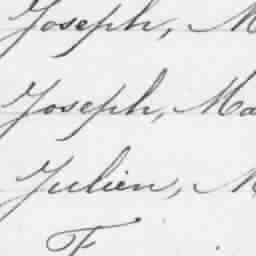 Joseph, M
Joseph, Ma
Julien, M
F